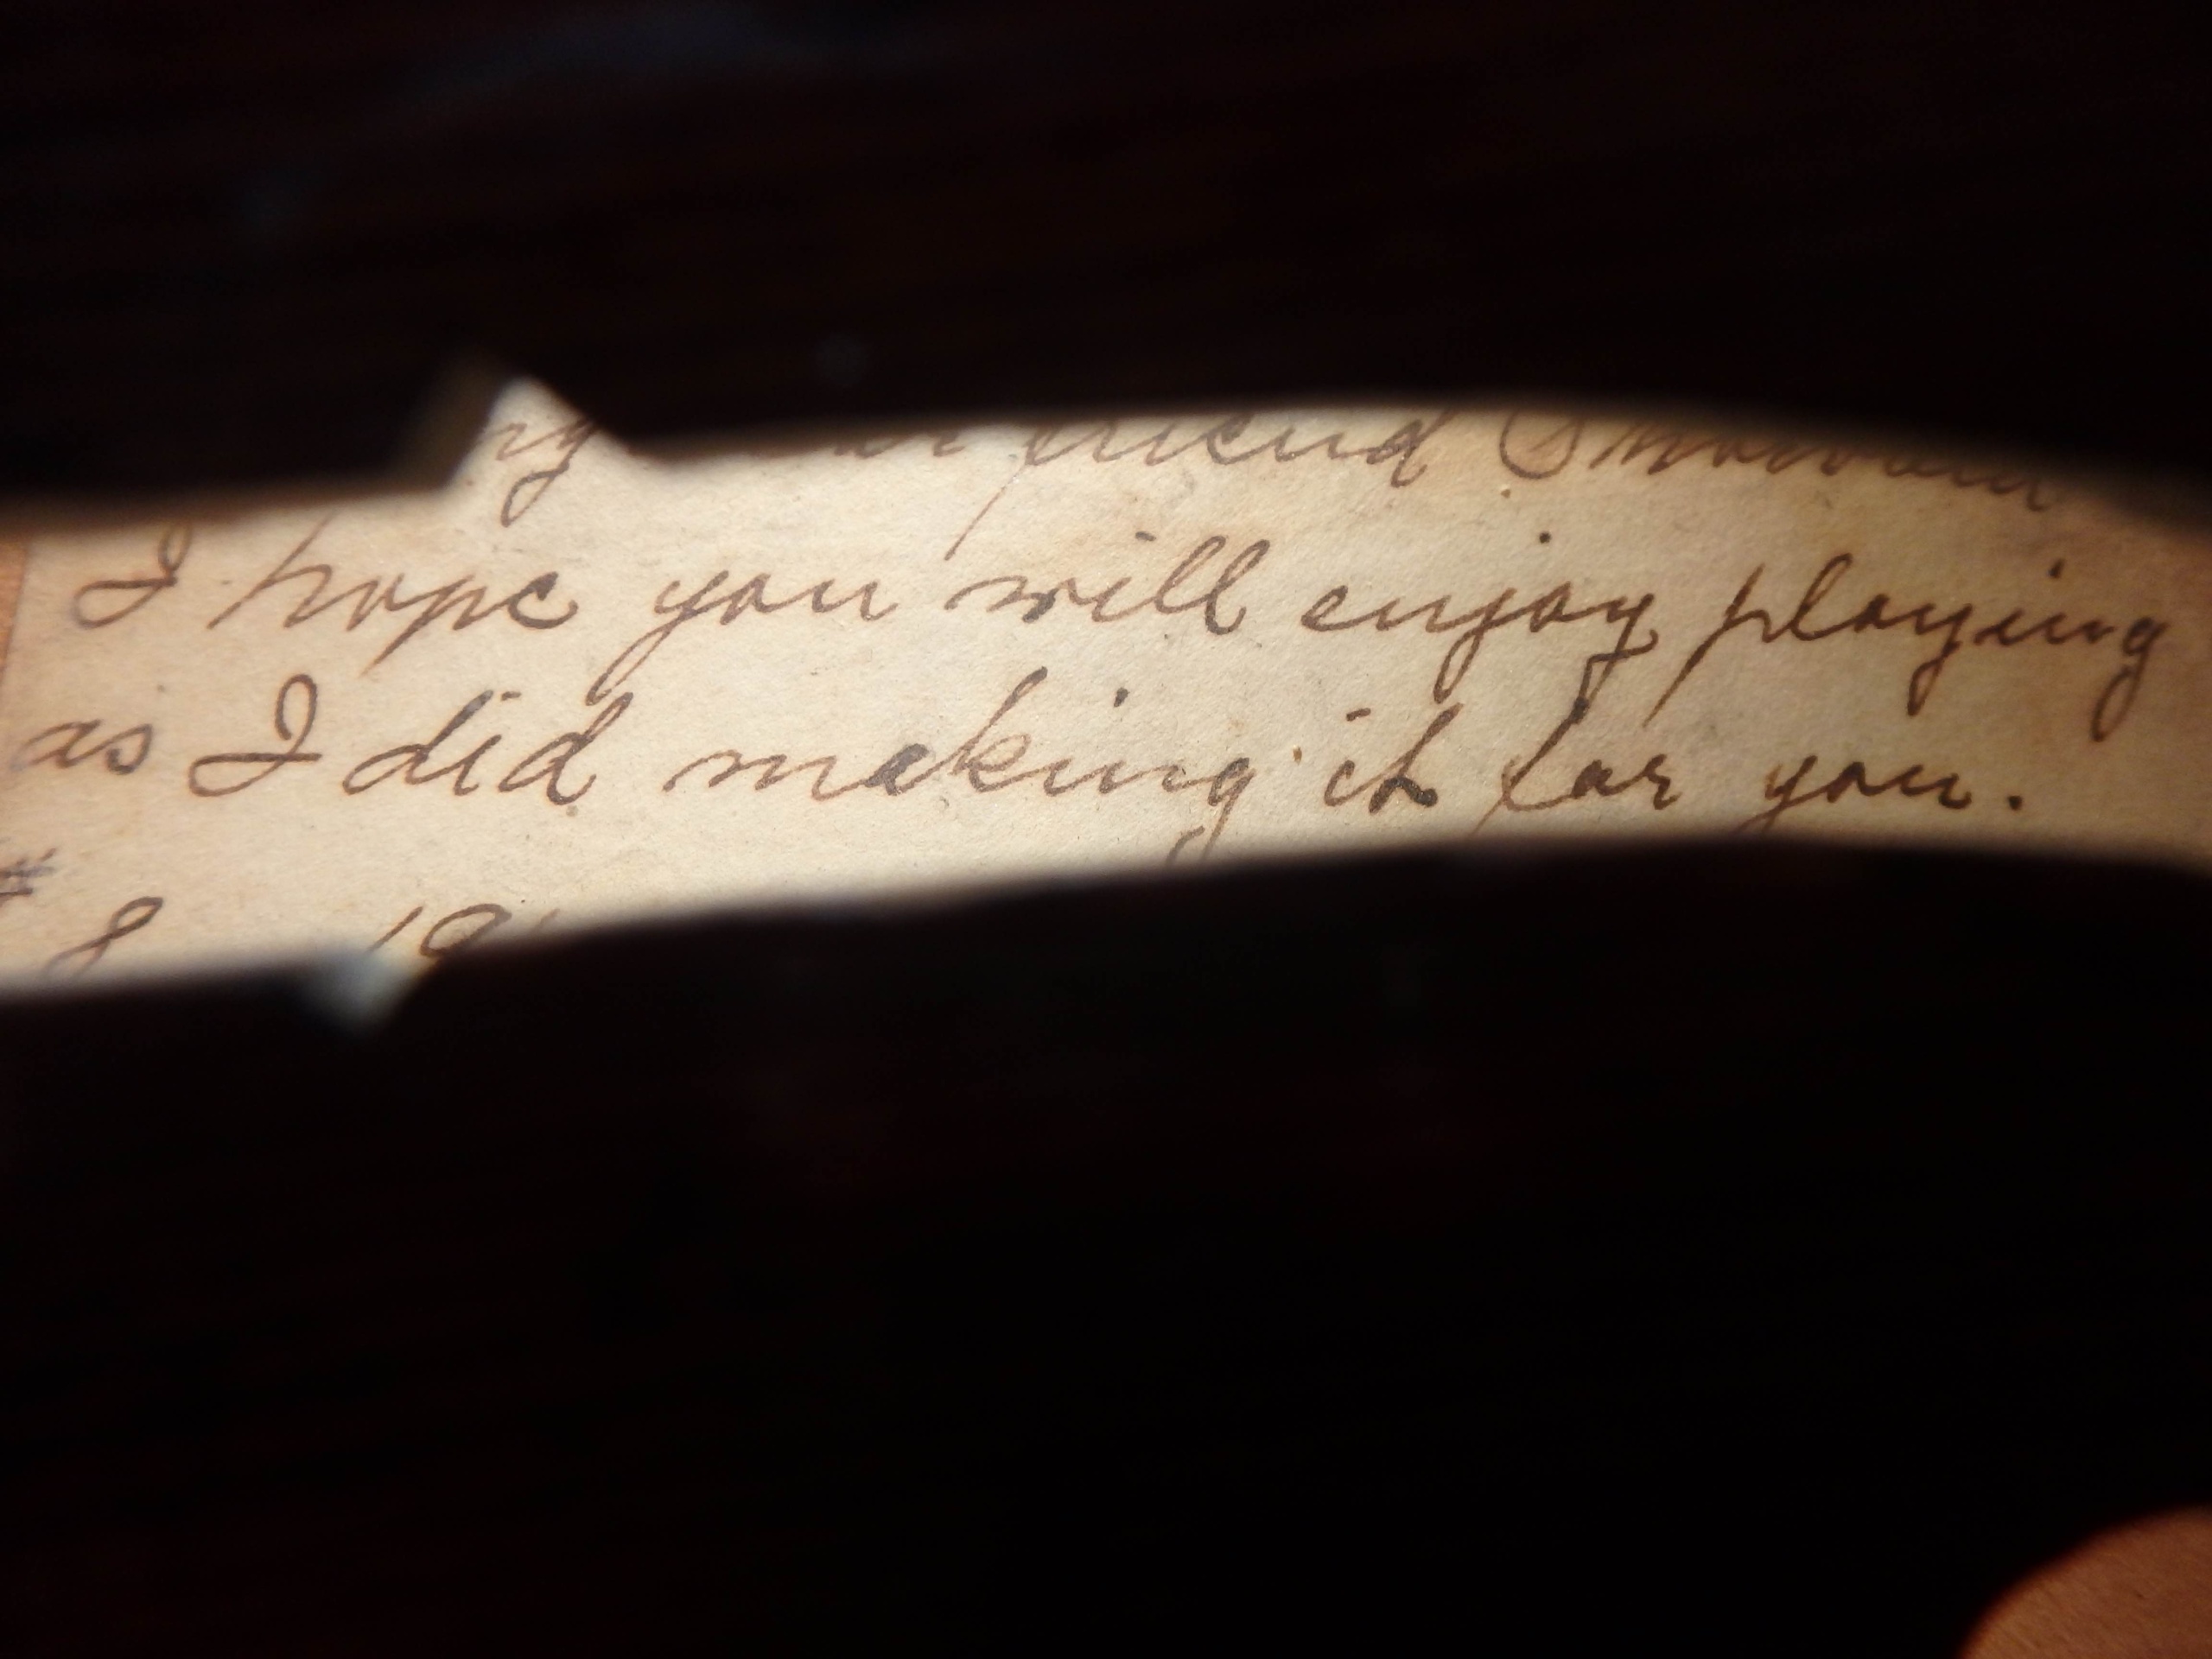 friend
I hope you will enjoy playing
as I did making it for you.
# 8